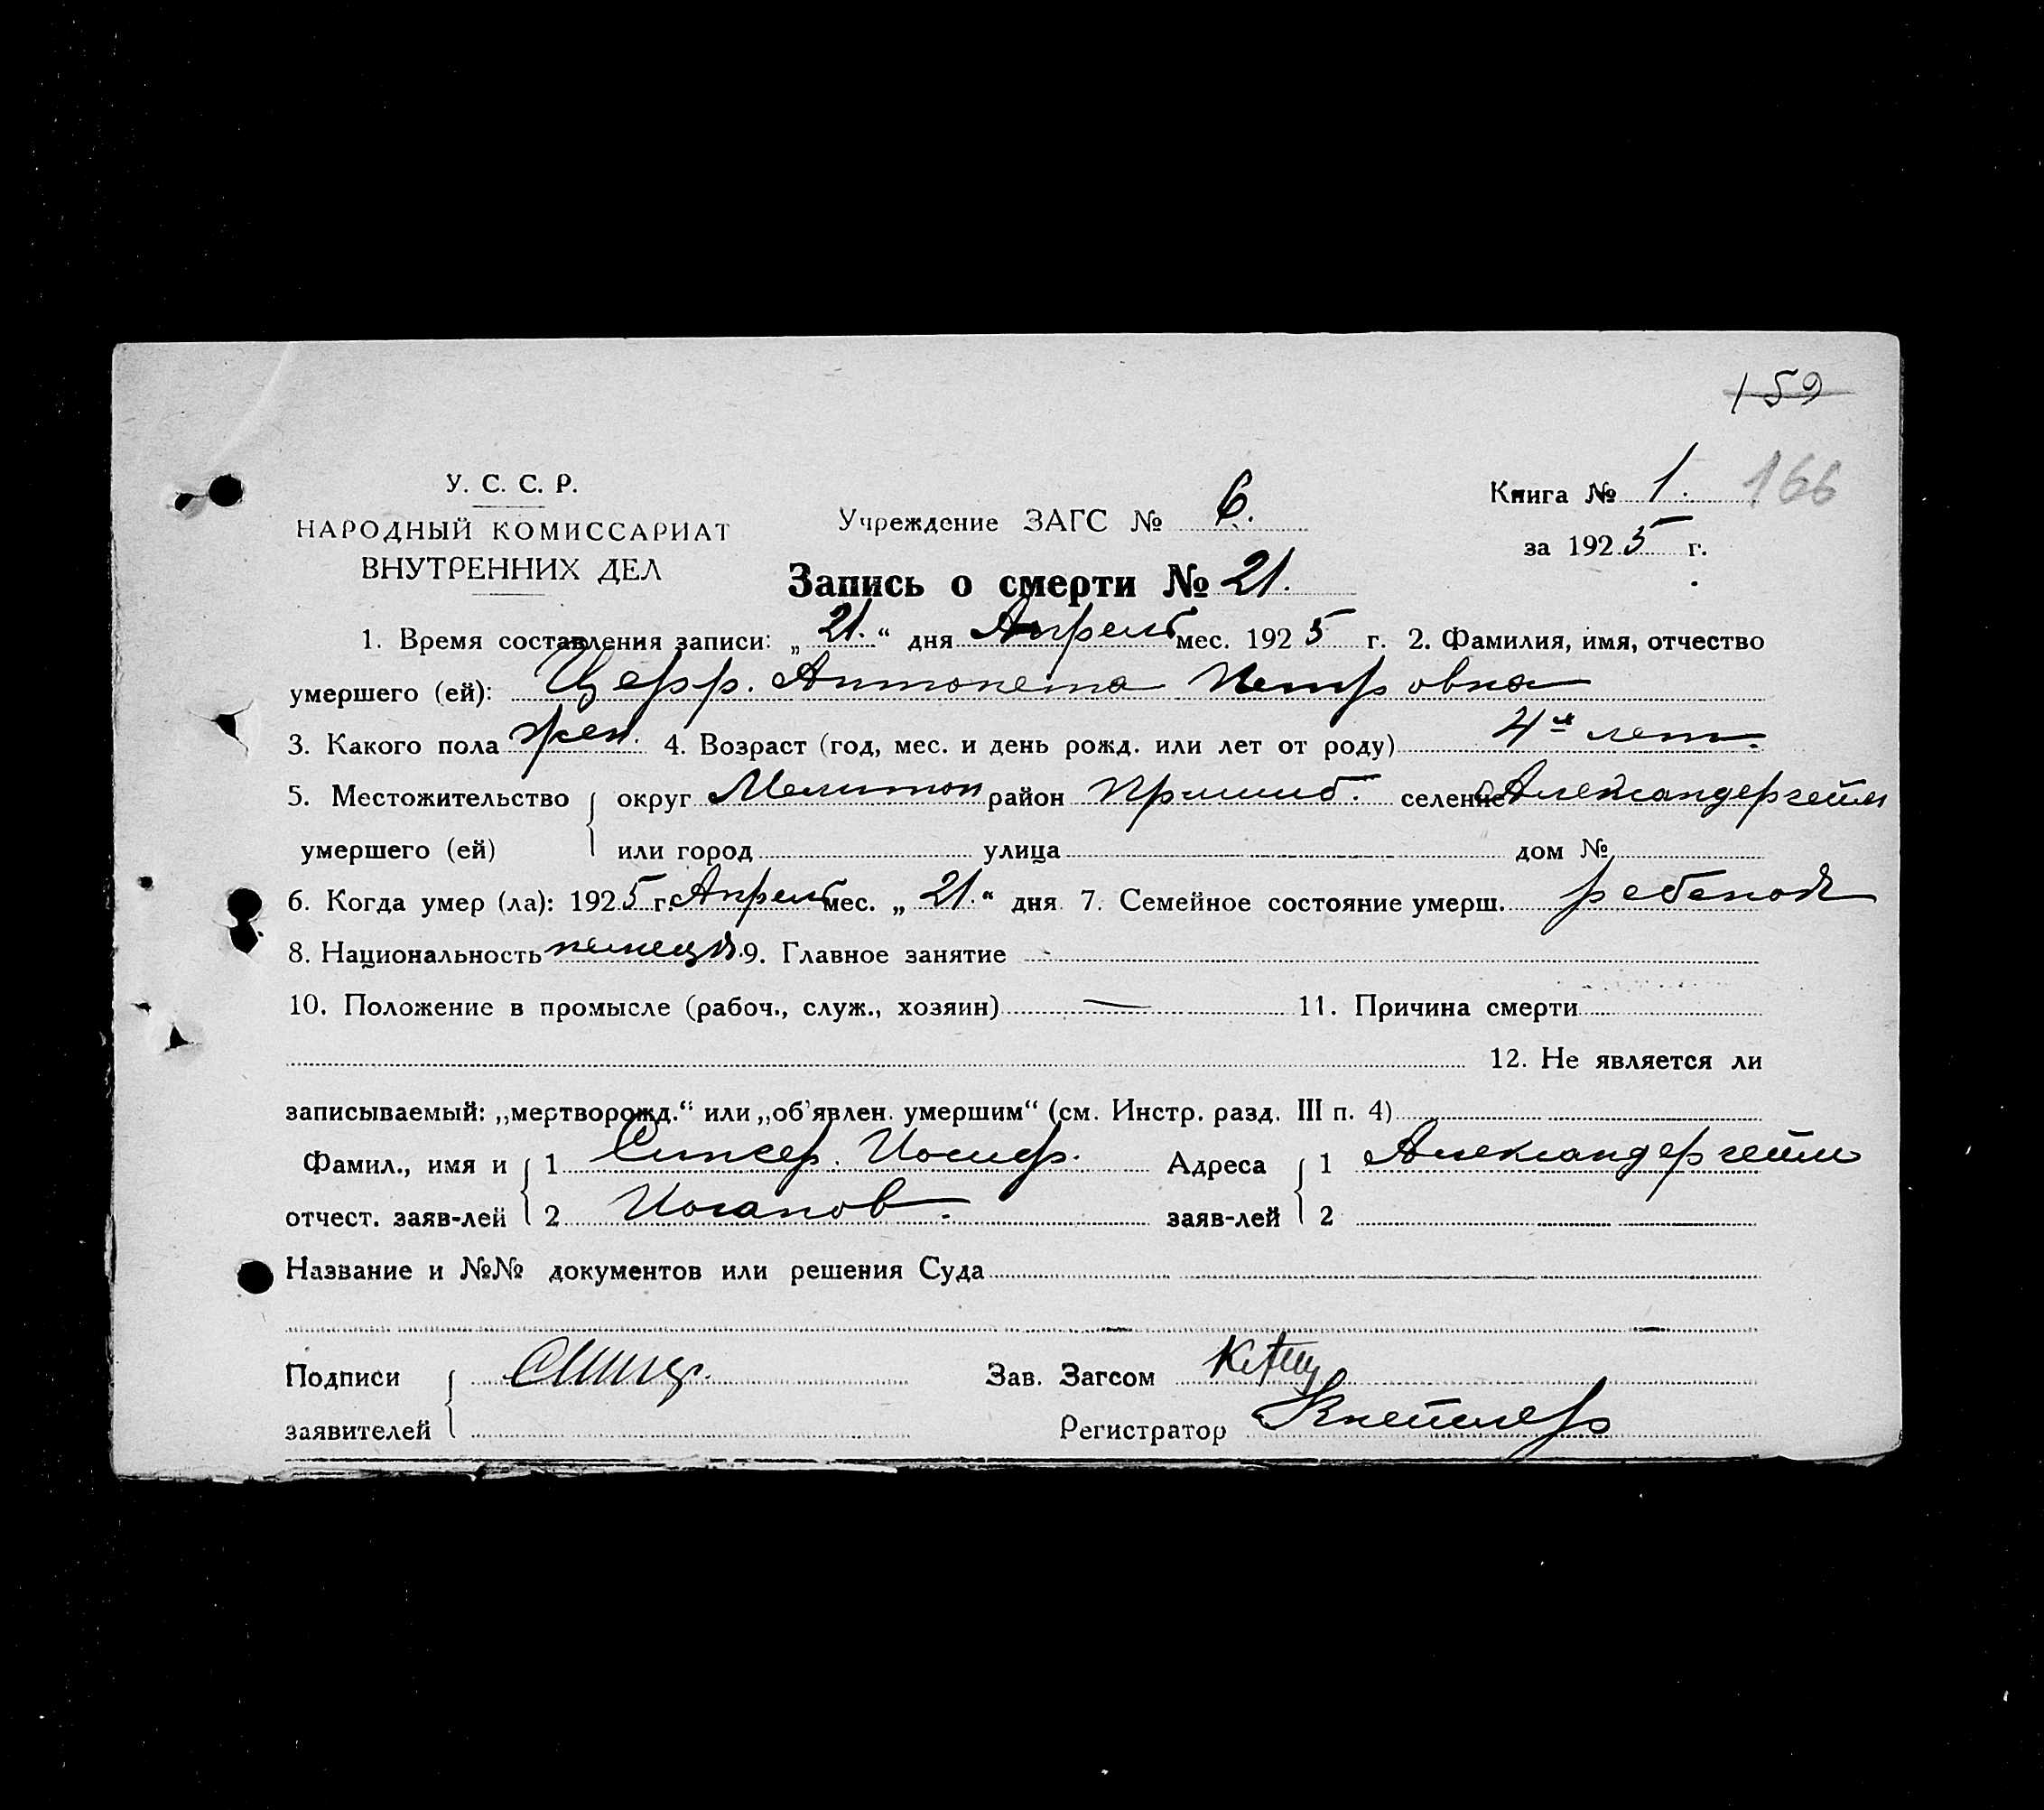 159
У. С. С. Р.
НАРОДНЫЙ КОМИССАРИАТ
ВНУТРЕННИХ ДЕЛ
Учреждение ЗАГС № 6.
Книга № 1. 166
за 1925 г.
Запись о смерти № 21.
1. Время составления записи: „21.“ дня Апрель мес. 1925 г. 2. Фамилия, имя, отчество
умершего (ей): Церр. Антонета Петровна
3. Какого пола жен. 4. Возраст (год, мес. и день рожд. или лет от роду) 4х лет.
5. Местожительство округ Мелитоп район Пришиб. селение Александергейм
умершего (ей) или город улица дом №
6. Когда умер (ла): 1925 г. Апрель мес. „21.“ дня 7. Семейное состояние умерш. ребенок
8. Национальность немецк. 9. Главное занятие -
10. Положение в промысле (рабоч., служ., хозяин) — 11. Причина смерти
12. Не является ли
записываемый: „мертворожд.“ или „об'явлен. умершим“ (см. Инстр. разд. III п. 4)
Фамил., имя и 1 Иосиф. Адреса 1 Александергейм
отчест. заяв-лей 2 Иоганов. заяв-лей 2
Название и №№ документов или решения Суда
Подписи Зав. Загсом
заявителей Регистратор